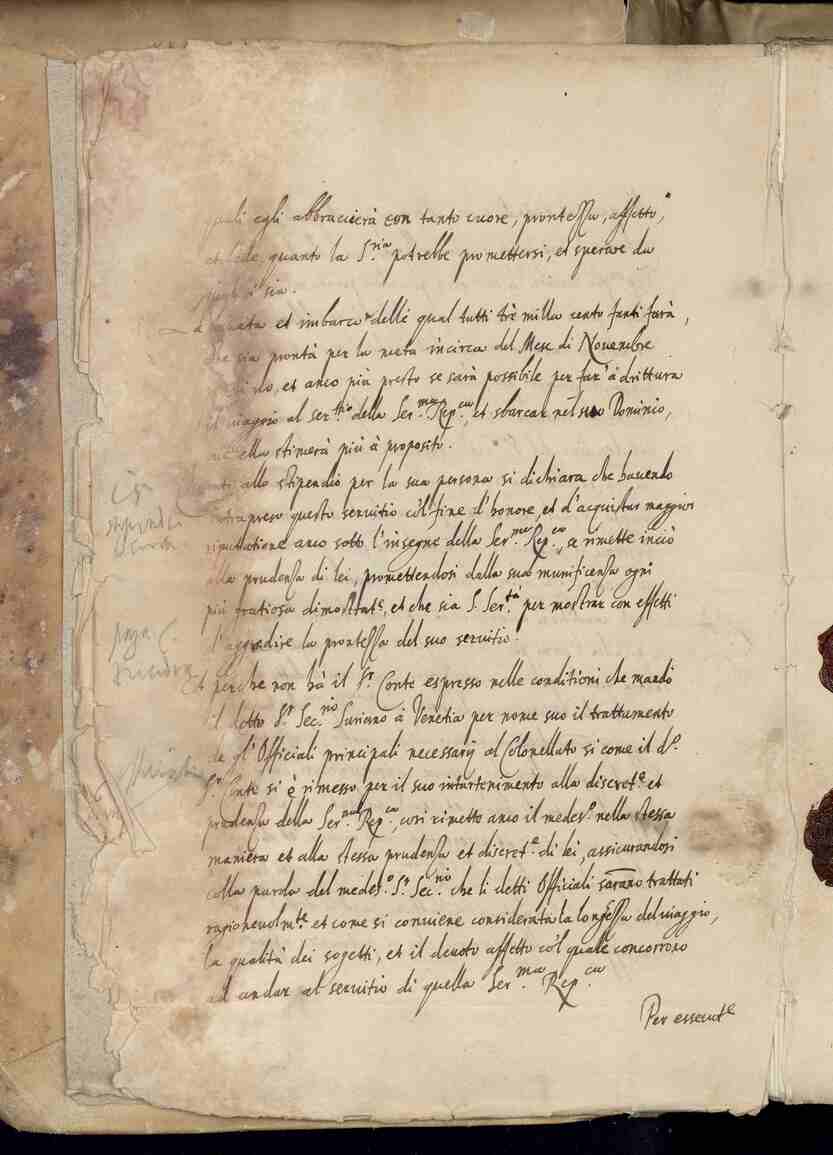 egli abbraccierà con tanto cuore, prontezza, affetto,
et fede, quanto la S.ria potrebbe promettersi, et sperare da
sia.
et imbarco delle qual tutti trè milla cento fanti farà,
che sia prontà per la metà incirca del Mese di Nouembre
et anco più presto se sarà possibile per far' à drittura
il uiaggio al ser.tio della Ser.ma Rep.ca, et sbarcar nel suo Dominio,
ella stimerà più à proposito.
allo stipendio per la sua persona si dichiara che hauendo
intrapreso questo seruitio co'l fine d'honore, et d'acquistar maggior
riputatione anco sotto l'insegne della Ser.ma Rep.ca, se rimette in ciò
alla prudenza di lei, promettendosi dalla sua munificenza ogni
più gratiosa dimostrat.e, et che sia S. Ser.tà per mostrar con effetti
l'aggradire la prontezza del suo seruitio.
Et perche non hà il S.r Conte espresso nelle conditioni che mandò
il detto S.r Sec.rio Suriano à Venetia per nome suo il trattamento
de gl'Officiali principali necessarij al Colonellato si come il d.o
S.r Conte si è rimesso per il suo intertenimento alla discret.e et
prudenza della Ser.ma Rep.ca, così rimetto anco il medes.o nella stessa
maniera et alla stessa prudenza et discret.e di lei, assicurandosi
colla parola del medes.o S.r Sec.rio che li detti Officiali sarano trattati
ragioneuolm.te et come si conuiene considerata la longhezza del uiaggio,
la qualità dei sogetti, et il deuoto affetto co'l quale concorrono
ad andar al seruitio di quella Ser.ma Rep.ca
Per essecut.e